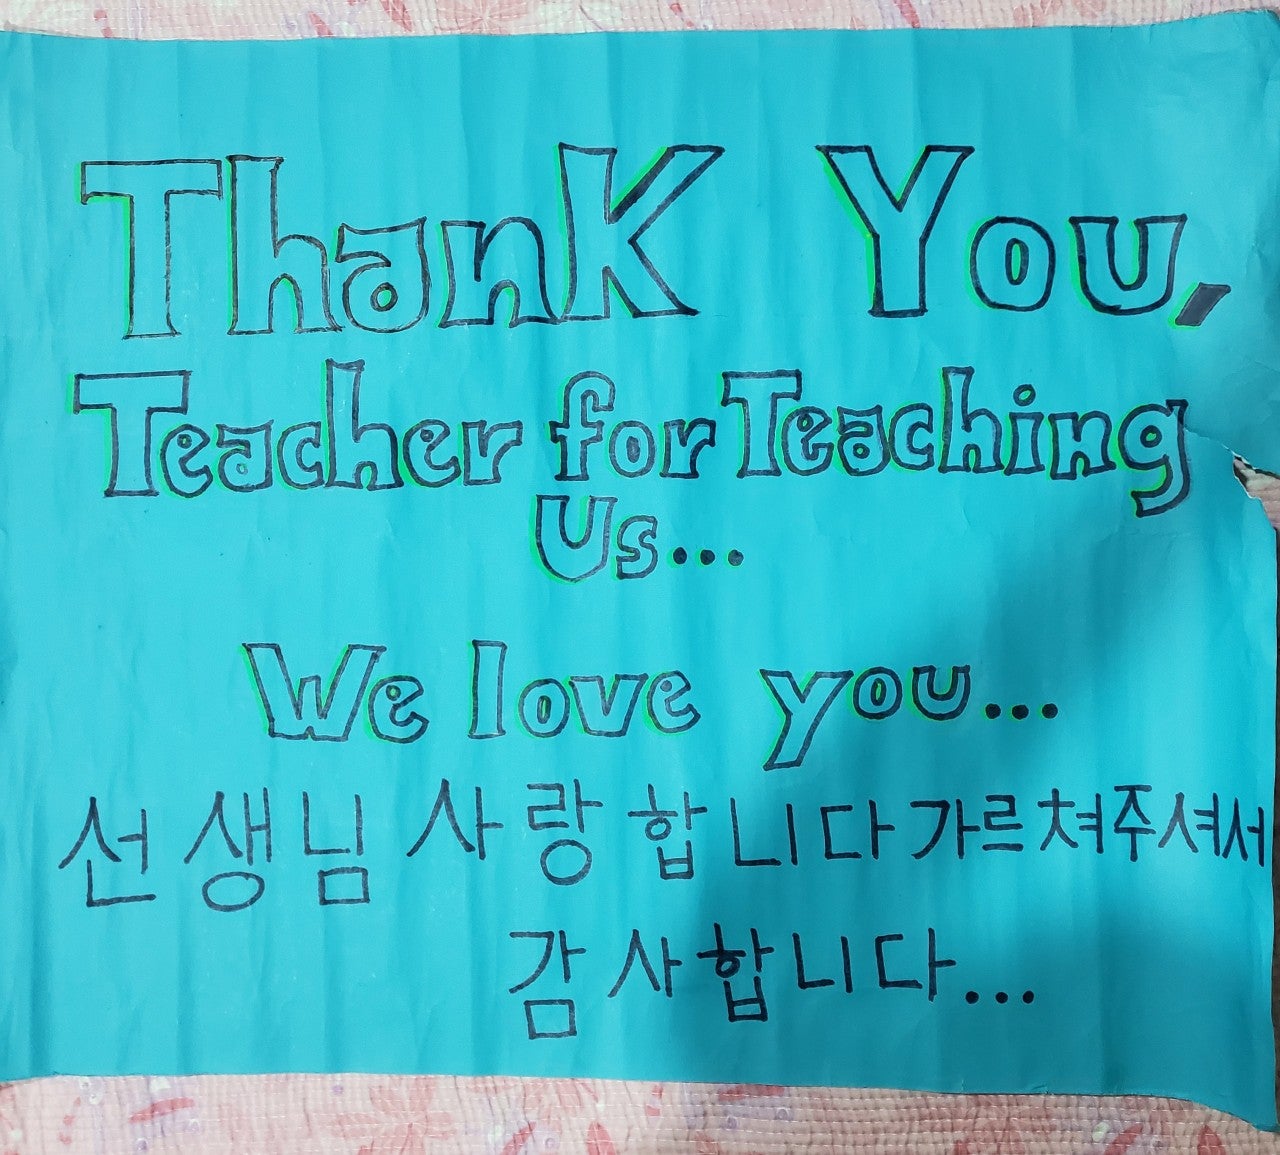 Thank You,
Teacher for Teaching
Us...
We love you...
선생님 사랑합니다 가르쳐주셔서
감사합니다...